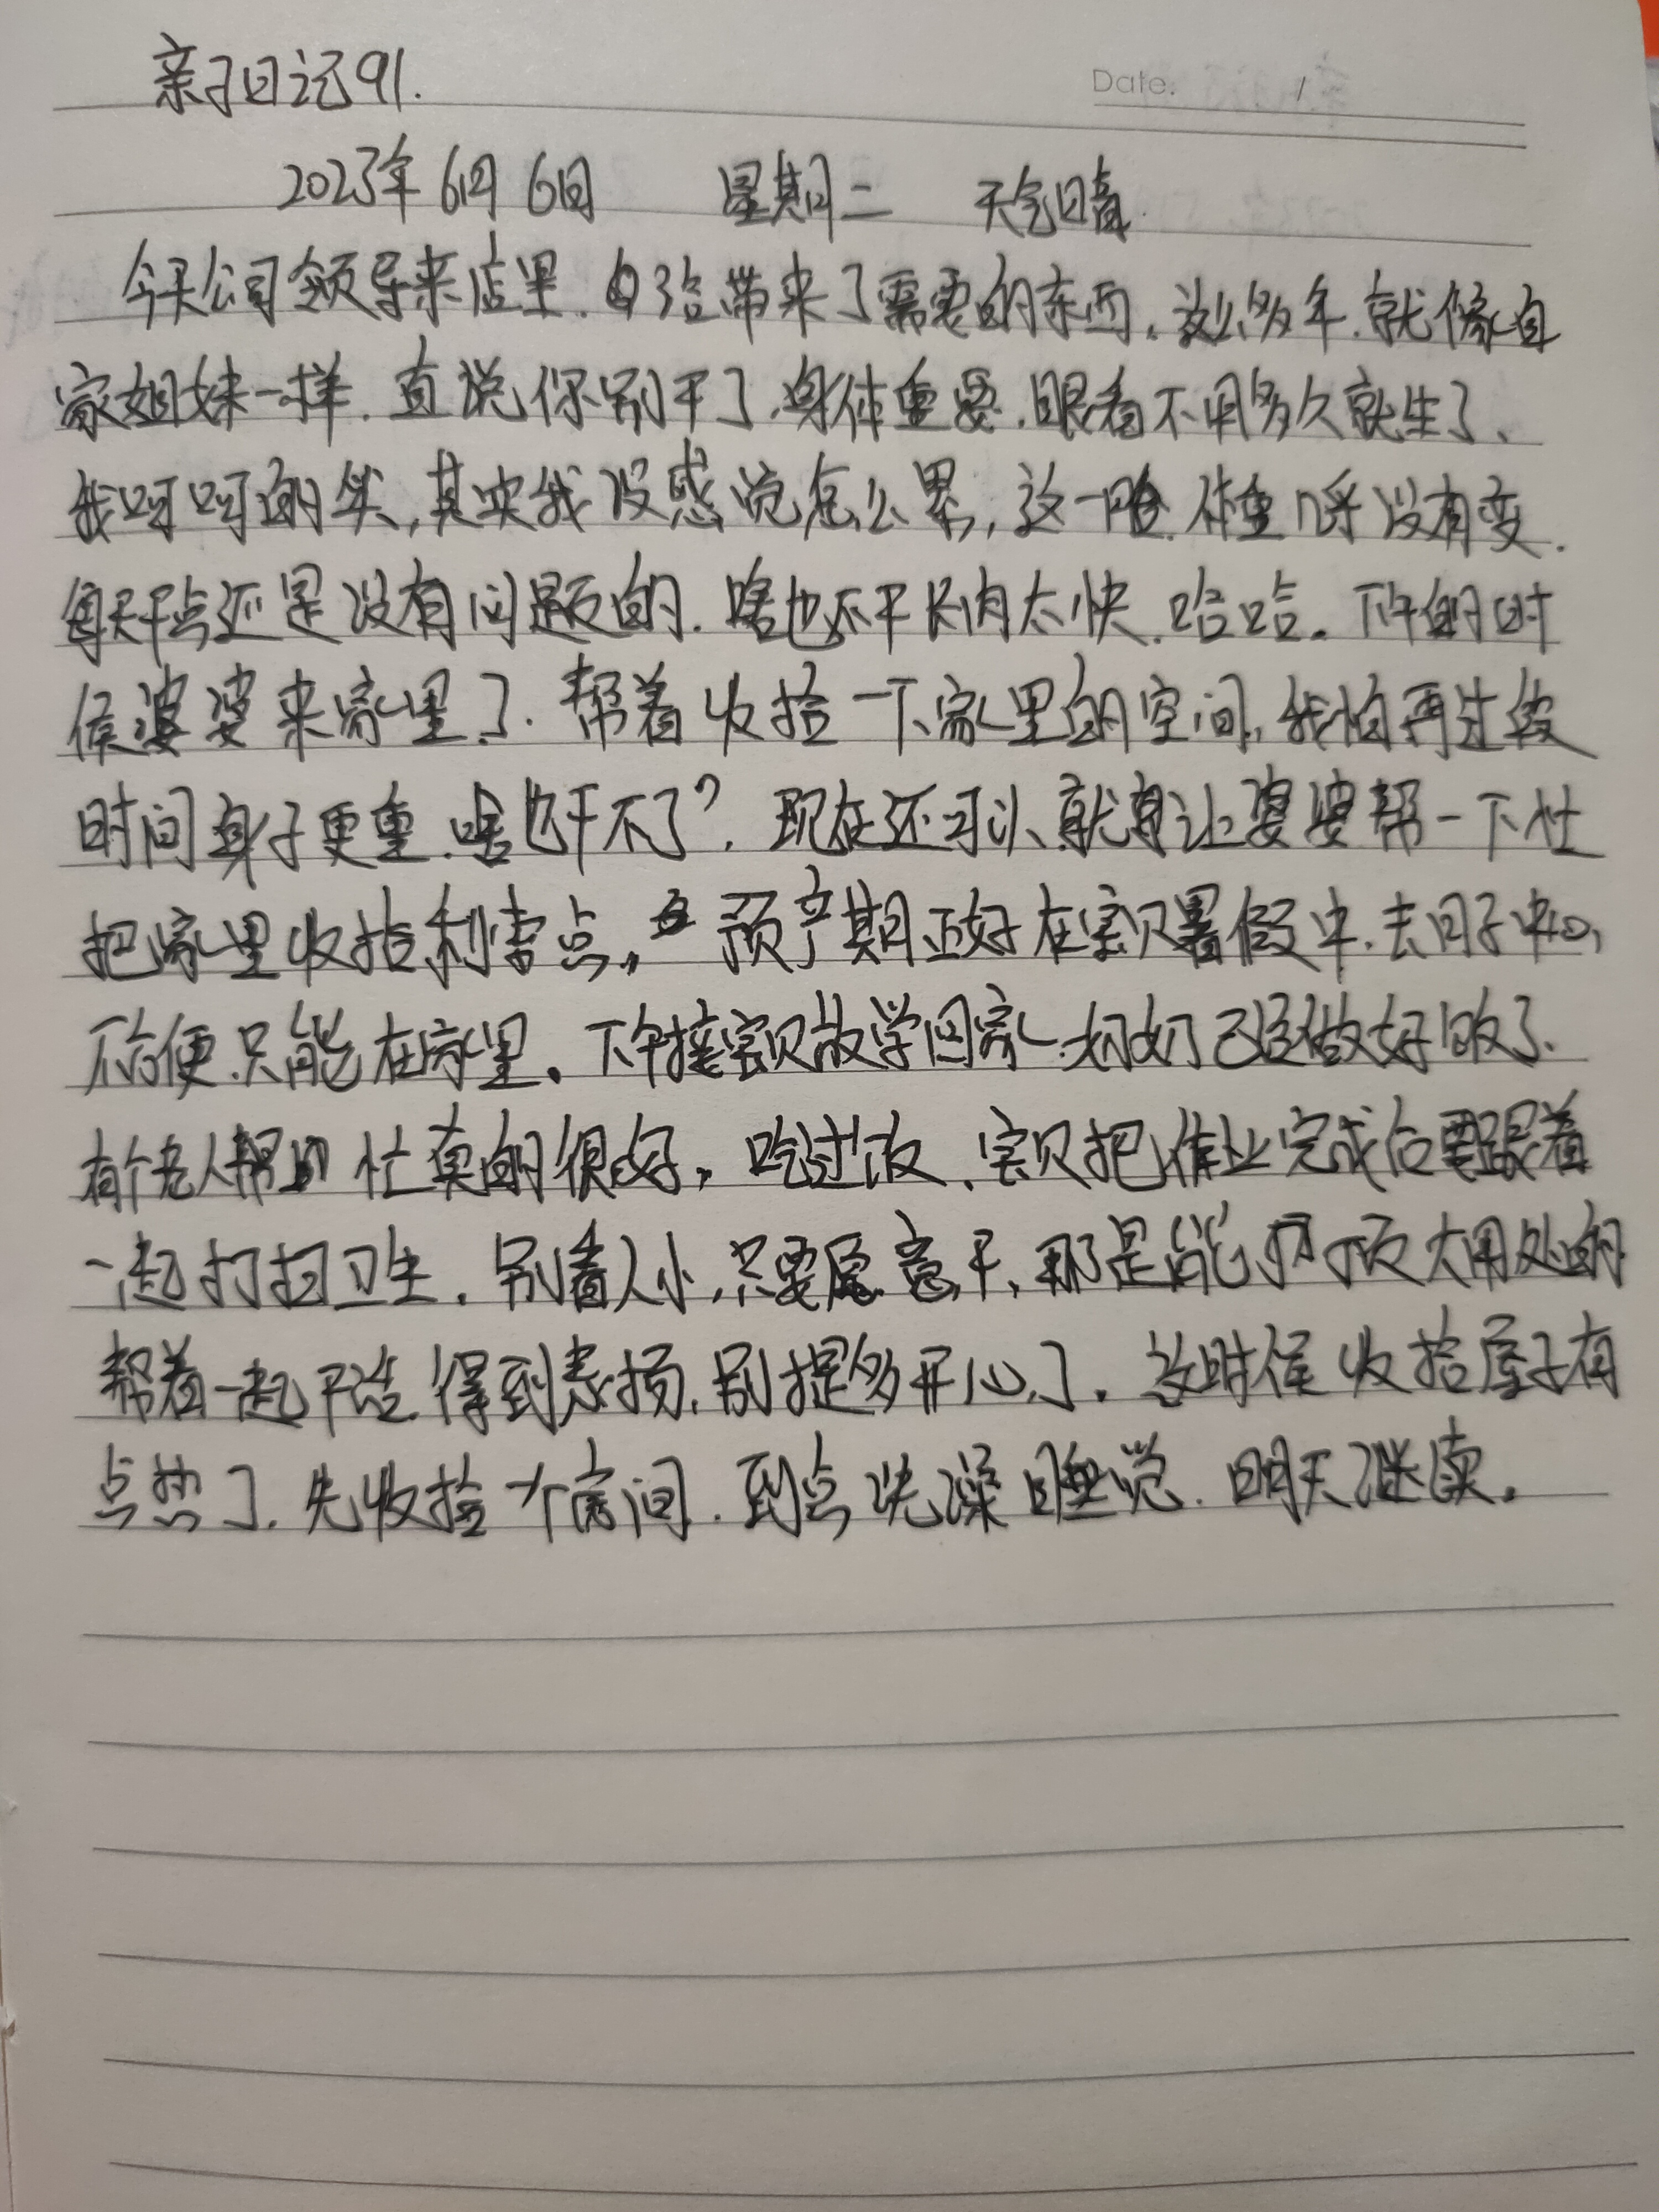 亲子日记91.
Date. /
2023年6月6日 星期二 天气晴.
今天公司领导来店里.给带来了需要的东西.这么多年.就像自
家姐妹一样.直说你别干了.身体重要.眼看不用多久就生了、
我呵呵的笑,其实我没感觉怎么累,这一胎.体重几乎没有变.
每天干点还是没有问题的.啥也不干长肉太快.哈哈。下午的时
候婆婆来家里了.帮着收拾一下家里的空间,我怕再过段
时间身子更重.啥也干不了?.现在还可以.就让婆婆帮一下忙
把家里收拾利索点。预产期正好在宝贝暑假中.去月子中心,
不方便.只能在家里。下午接宝贝放学回家.奶奶已经做好饭了.
有个老人帮忙真的很好。吃过饭、宝贝把作业完成后要跟着
一起打扫卫生.别看人小.只要愿意干,那是能顶大用处的
帮着一起干活.得到表扬.别提多开心了.这时候收拾屋子有
点热了.先收拾一个房间.到点洗澡睡觉.明天继续。